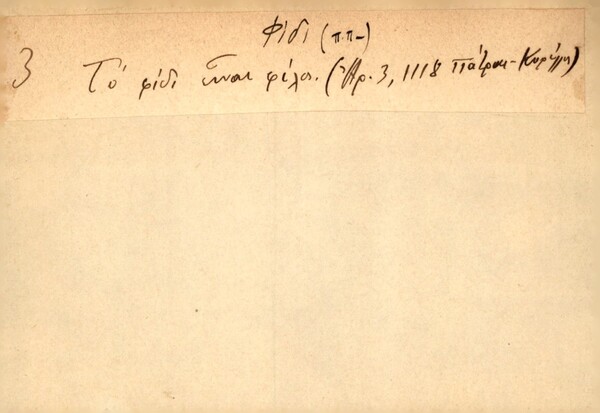 Φίδι (π.π-)
3 Τό φίδι εἶναι φίλος. (Ἀρ. 3, 1118 Πάτραι-Κορύλλη)